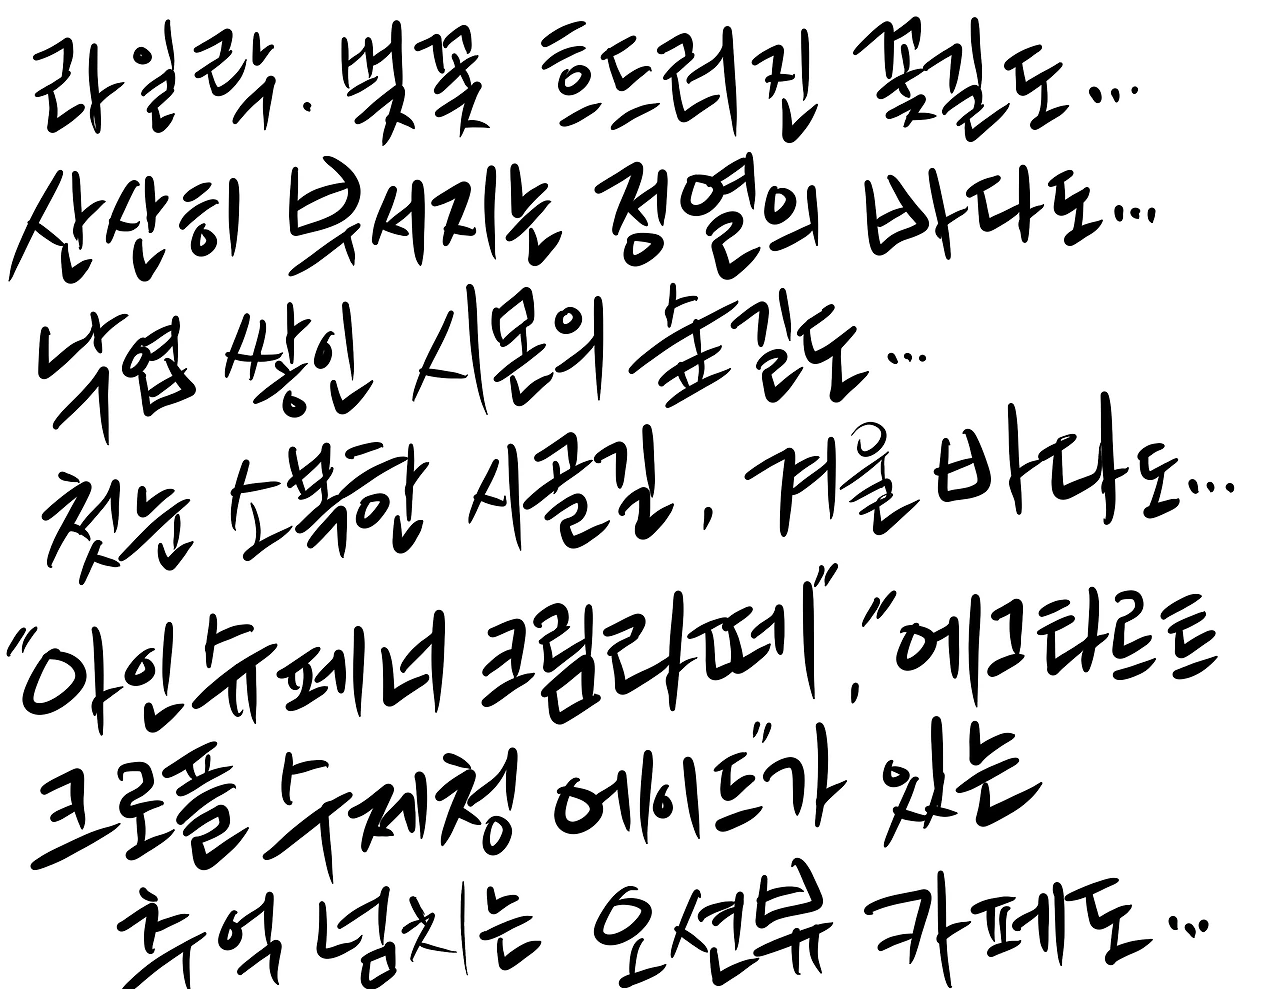 라일락. 벚꽃 흐드러진 꽃길도...
산산히 부서지는 정열의 바다도...
낙엽 쌓인 시몬의 숲길도...
첫눈 소복한 시골길, 겨울 바다도...
"아인슈페너 크림라떼", "에그타르트
크로플 수제청 에이드"가 있는
추억 넘치는 오션뷰 카페도...